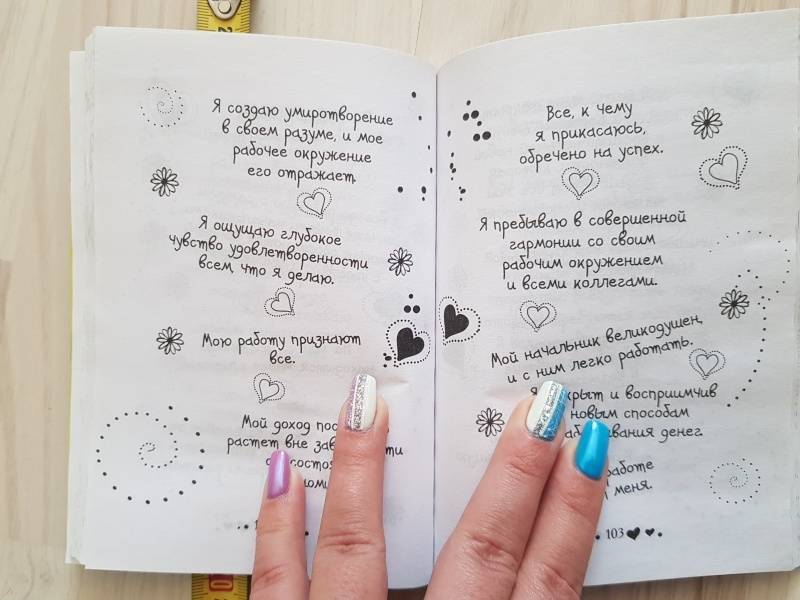 Я создаю умиротворение
в своем разуме, и мое
рабочее окружение
его отражает.
Я ощущаю глубокое
чувство удовлетворенности
всем, что я делаю.
Мою работу признают
все.
Мой доход
растет вне
Все, к чему
я прикасаюсь,
обречено на успех.
Я пребываю в совершенной
гармонии со своим
рабочим окружением
и всеми коллегами.
Мой начальник великодушен,
и с ним легко работать.
и восприимчив
новым способам
денег.
меня.
103